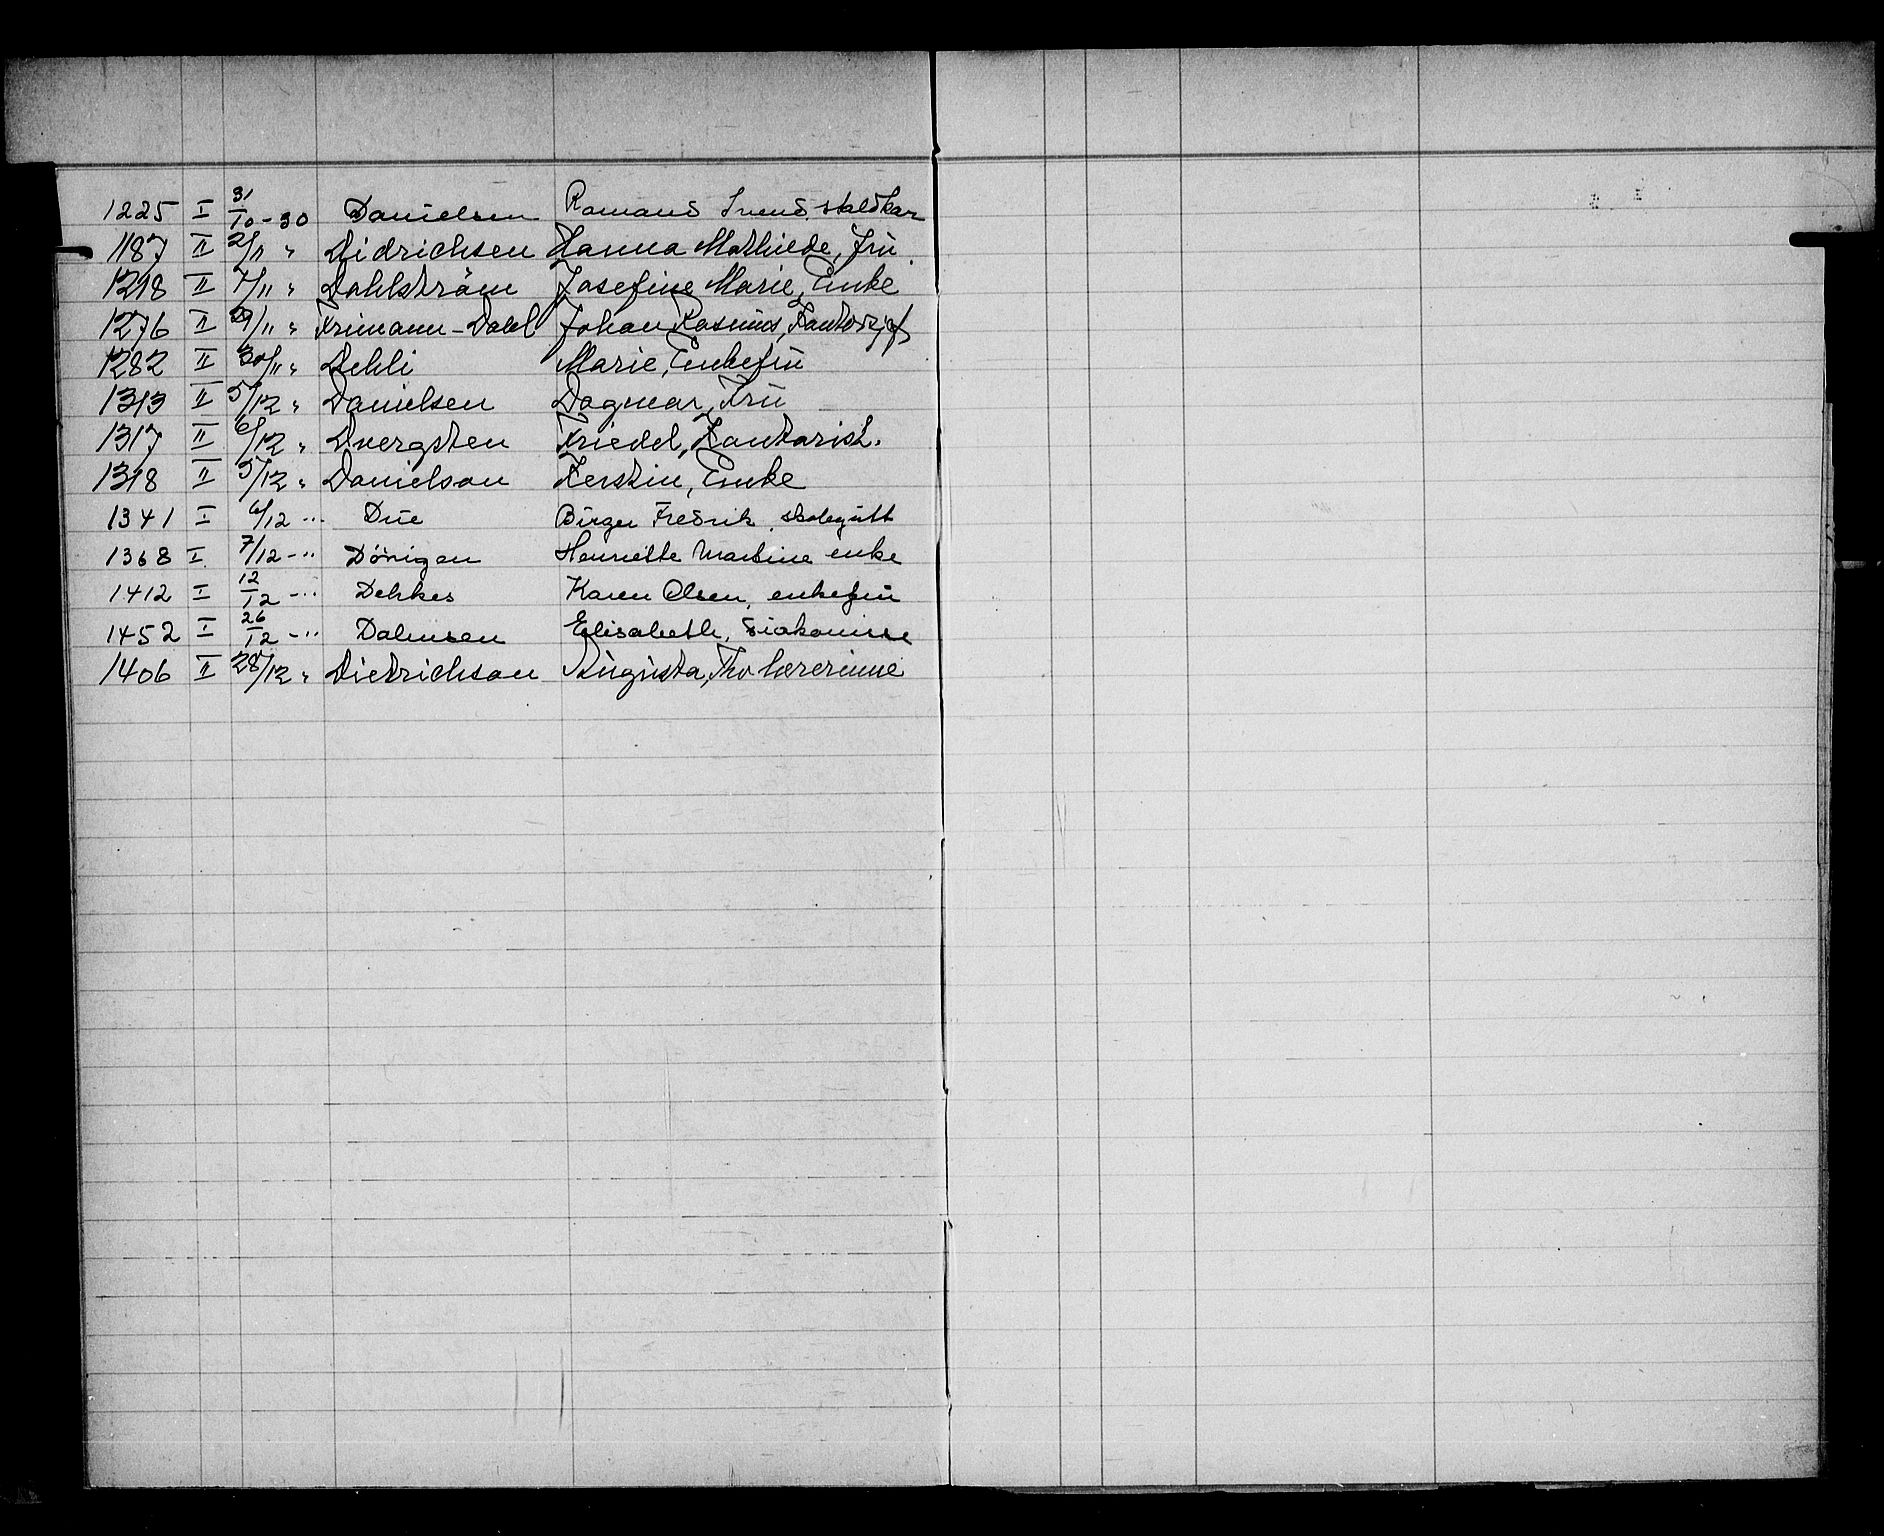 1225 I 31/10-30 Danielsen Romano Svend. staldkar
1187 II 2/11 " Didrichsen Hanna Mathilde, fru.
1218 II 7/11 " Dahlström Josefine Marie, Enke
1276 II 29/11 " Frimann-Dahl Johan Rasmus,
1282 II 30/11 " Dehli Marie, Enkefru
1313 II 5/12 " Danielsen Dagmar, Fru
1317 II 6/12 " Dvergsten Friedel, Kontorist.
1318 II 5/12 " Danielson Kerstin, Enke
1341 I 6/12 -" Due Birger Fredrik, skolegutt
1368 I. 7/12 -" Henriette Martine enke
1412 I 12/12 -" Dehkes Karen Olsen, enkefru
1452 I 26/12 -" Dalmsen Elisabeth, diakonisse
1406 II 28/12 " Dietrichson Augusta, Fhv lærerinne